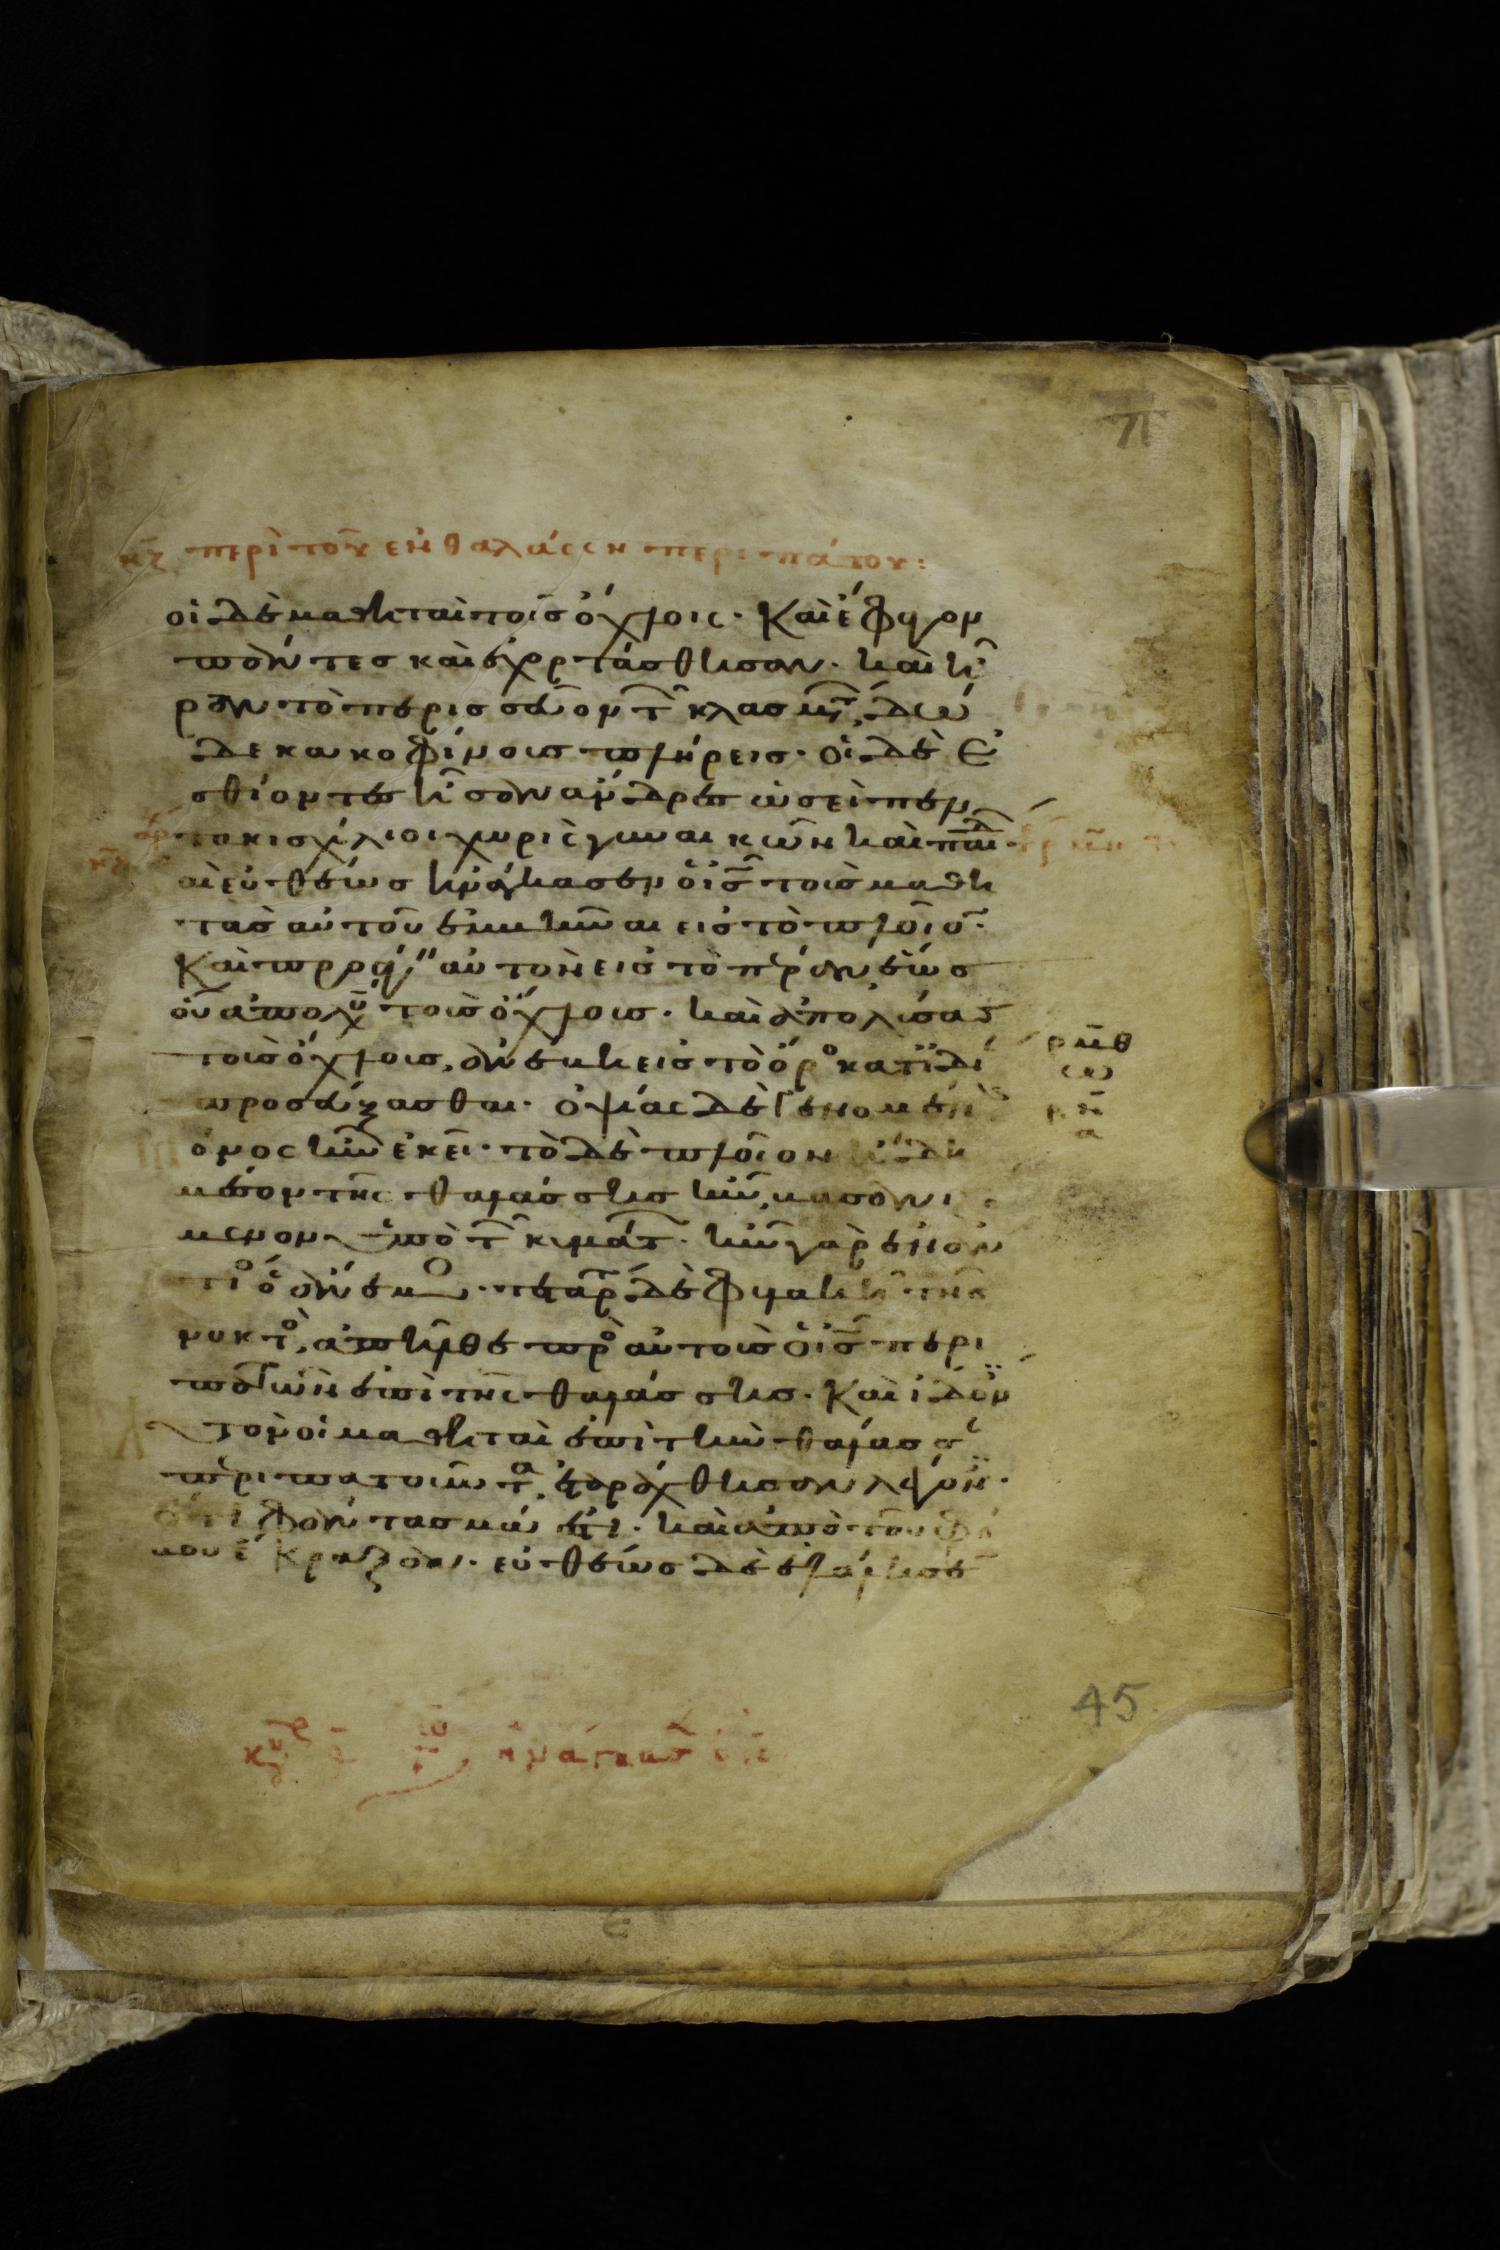 71
κζ περὶ τοῦ ἐν θαλάσση περιπάτου:
οἱ δὲ μαθηταὶ τοῖς ὄχλοις. Καὶ ἔφαγον
πάντες καὶ ἐχορτάσθησαν. καὶ ἦ
ραν τὸ περισσεῦον τῶν κλασμάτ δώ
δεκα κοφίνους πλήρεις. οἱ δὲ ἐ
σθίοντες ἦσαν ἄνδρες ὡσεὶ πεν
τακισχίλιοι χωρὶς γυναικῶν καὶ παιδ
αὶ εὐθέως ἠνάγκασεν ὁ ις τοὺς μαθη
τὰς αὐτοῦ ἐμβῆναι εἰς τὸ πλοῖον.
Καὶ προάγ αὐτὸν εἰς τὸ πέραν ἕως
οὗ ἀπολύ τοὺς ὄχλους. καὶ ἀπολύσας
τοὺς ὄχλους, ἀνέβη εἰς τὸ ὄρο κατ ἰδί
προσεύξασθαι. ὀψίας δὲ γενομένης
μόνος ἦν ἐκεῖ. τὸ δὲ πλοῖον ἤδη
μέσον τῆς θαλάσσης ἦν, βασανι
μενον ὑπὸ τῶν κυμάτ. ἦν γὰρ ἐναν
τίο ὁ ἄνεμο. τετάρ δὲ φυλακῆ τῆς
νυκτὸ, ἀπῆλθε πρὸ αὐτοὺς ὁ ις περι
πατῶν ἐπὶ τῆς θαλάσσης. Καὶ ἰδόν
τὸν οἱ μαθηταὶ ἐπὶ τὴν θάλασσ
περιπατοῦντα, ἐταράχθησαν λέγον.
ὅτι φάντασμά ἐστι. καὶ ἀπὸ τοῦ φό
βου ἔκραξαν. εὐθέως δὲ ἐλάλησε
ρμθ
ρν
α
45